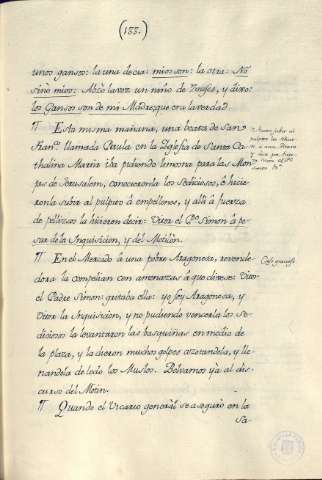 (133.)
unos gansos: la una decia: mios son: la otra: No
sino mios: Alzó la voz un niño de Tenger, y dixo:
los Gansos son de mi Madre; que era la verdad.
¶ Esta misma mañana, una beata de San
Fran.co llamada Paula en la Iglesia de Santa Ca-
thalina Martir iba pidiendo limosna para las Mon-
jas de Jerusalem, conocieronla los sediciosos, è hicie-
ronla subir al pulpito à empellones, y allà à fuerza
de pellizcos la hicieron decir: Vitor el P.e Simon à pe-
sar de la Inquisicion, y del Motilón.
¶ En el Mercado à una pobre Aragonesa, revende-
dora la compelian con amenazas à que dixese: Vitor
el Padre Simon: gritaba ella: yo soy Aragonesa, y
Vitor la Inquisicion, y no pudiendo vencerla los se-
diciosos la levantaron las basquiñas en medio de
la plaza, y la dieron muchos golpes azotandola, y lle-
nandola de lodo los Muslos. Bolvamos yà al dis-
curso del Motin.
¶ Quando el Vicario general se aseguró en la
Sa-
Caso gracioso